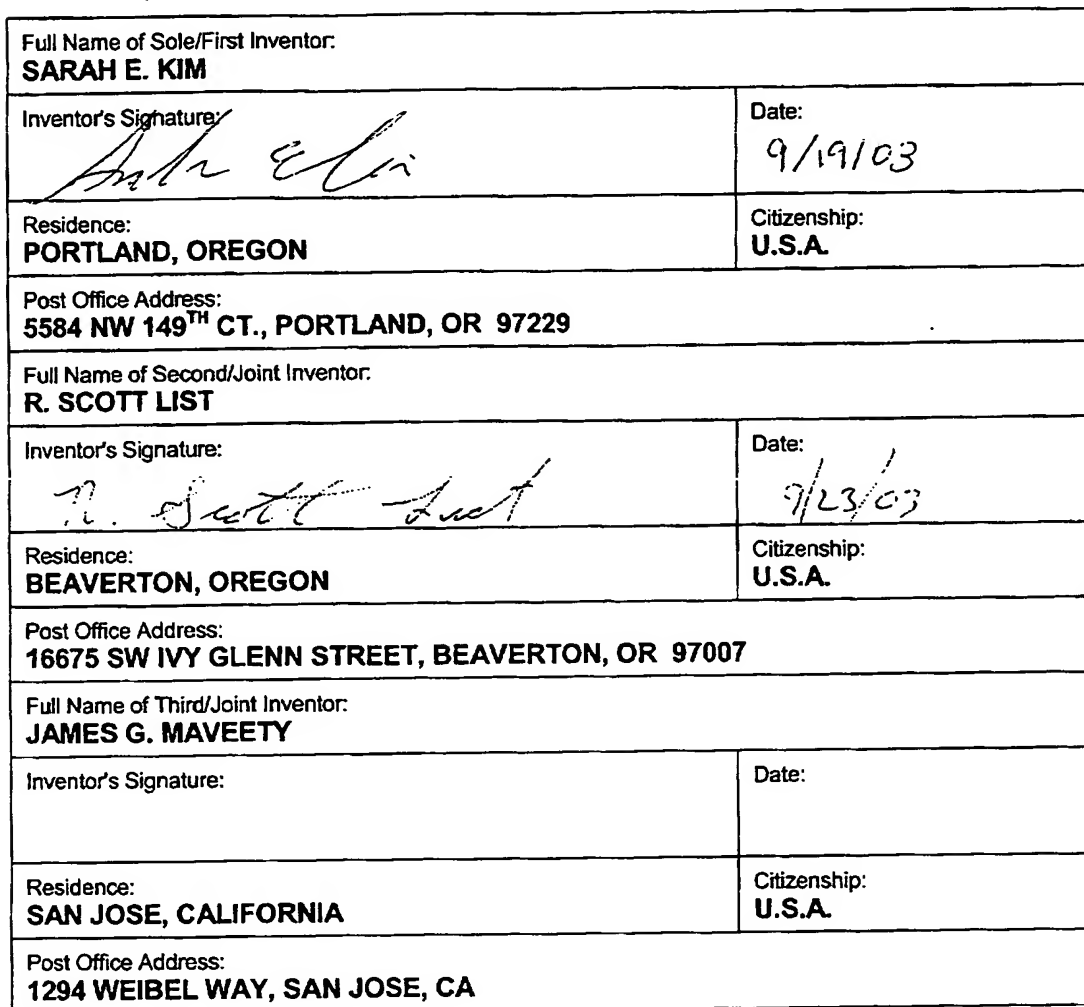 Full Name of Sole/First Inventor:
SARAH E. KIM
Inventor's Signature: Date:
9/19/03
Residence: Citizenship:
PORTLAND, OREGON U.S.A.
Post Office Address:
5584 NW 149TH CT., PORTLAND, OR 97229
Full Name of Second/Joint Inventor:
R. SCOTT LIST
Inventor's Signature: Date:
R. Scott List 9/23/03
Residence: Citizenship:
BEAVERTON, OREGON U.S.A.
Post Office Address:
16675 SW IVY GLENN STREET, BEAVERTON, OR 97007
Full Name of Third/Joint Inventor:
JAMES G. MAVEETY
Inventor's Signature: Date:
Residence: Citizenship:
SAN JOSE, CALIFORNIA U.S.A.
Post Office Address:
1294 WEIBEL WAY, SAN JOSE, CA